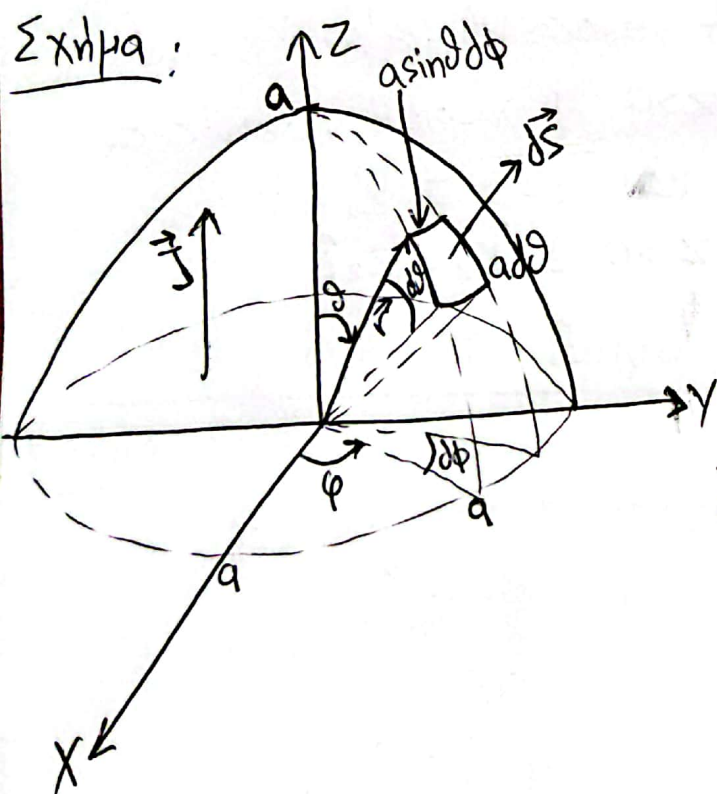 Σχήμα:
Z
a sinϑdϕ
a
dS
J
ϑ
r
dϑ
adϑ
Y
dϕ
φ
a
a
X